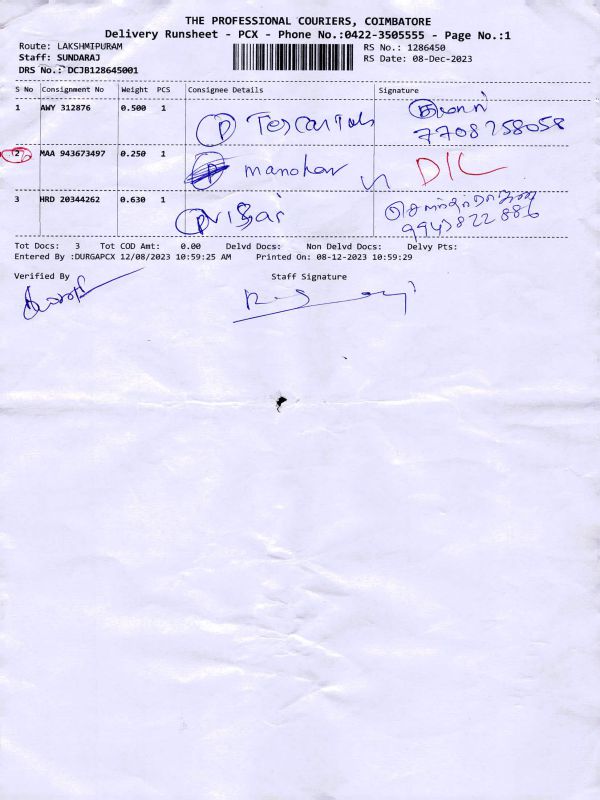 THE PROFESSIONAL COURIERS, COIMBATORE
Delivery Runsheet - PCX - Phone No.:0422-3505555 - Page No.:1
Route: LAKSHMIPURAM RS No.: 1286450
Staff: SUNDARAJ RS Date: 08-Dec-2023
DRS No.: DCJB128645001
S No Consignment No Weight PCS Consignee Details Signature
1 AWY 312876 0.500 1 P 7708258058
2 MAA 943673497 0.250 1 P manohar
3 HRD 20344262 0.630 1 P 9943822886
Tot Docs: 3 Tot COD Amt: 0.00 Delvd Docs: Non Delvd Docs: Delvy Pts:
Entered By :DURGAPCX 12/08/2023 10:59:25 AM Printed On: 08-12-2023 10:59:29
Verified By Staff Signature